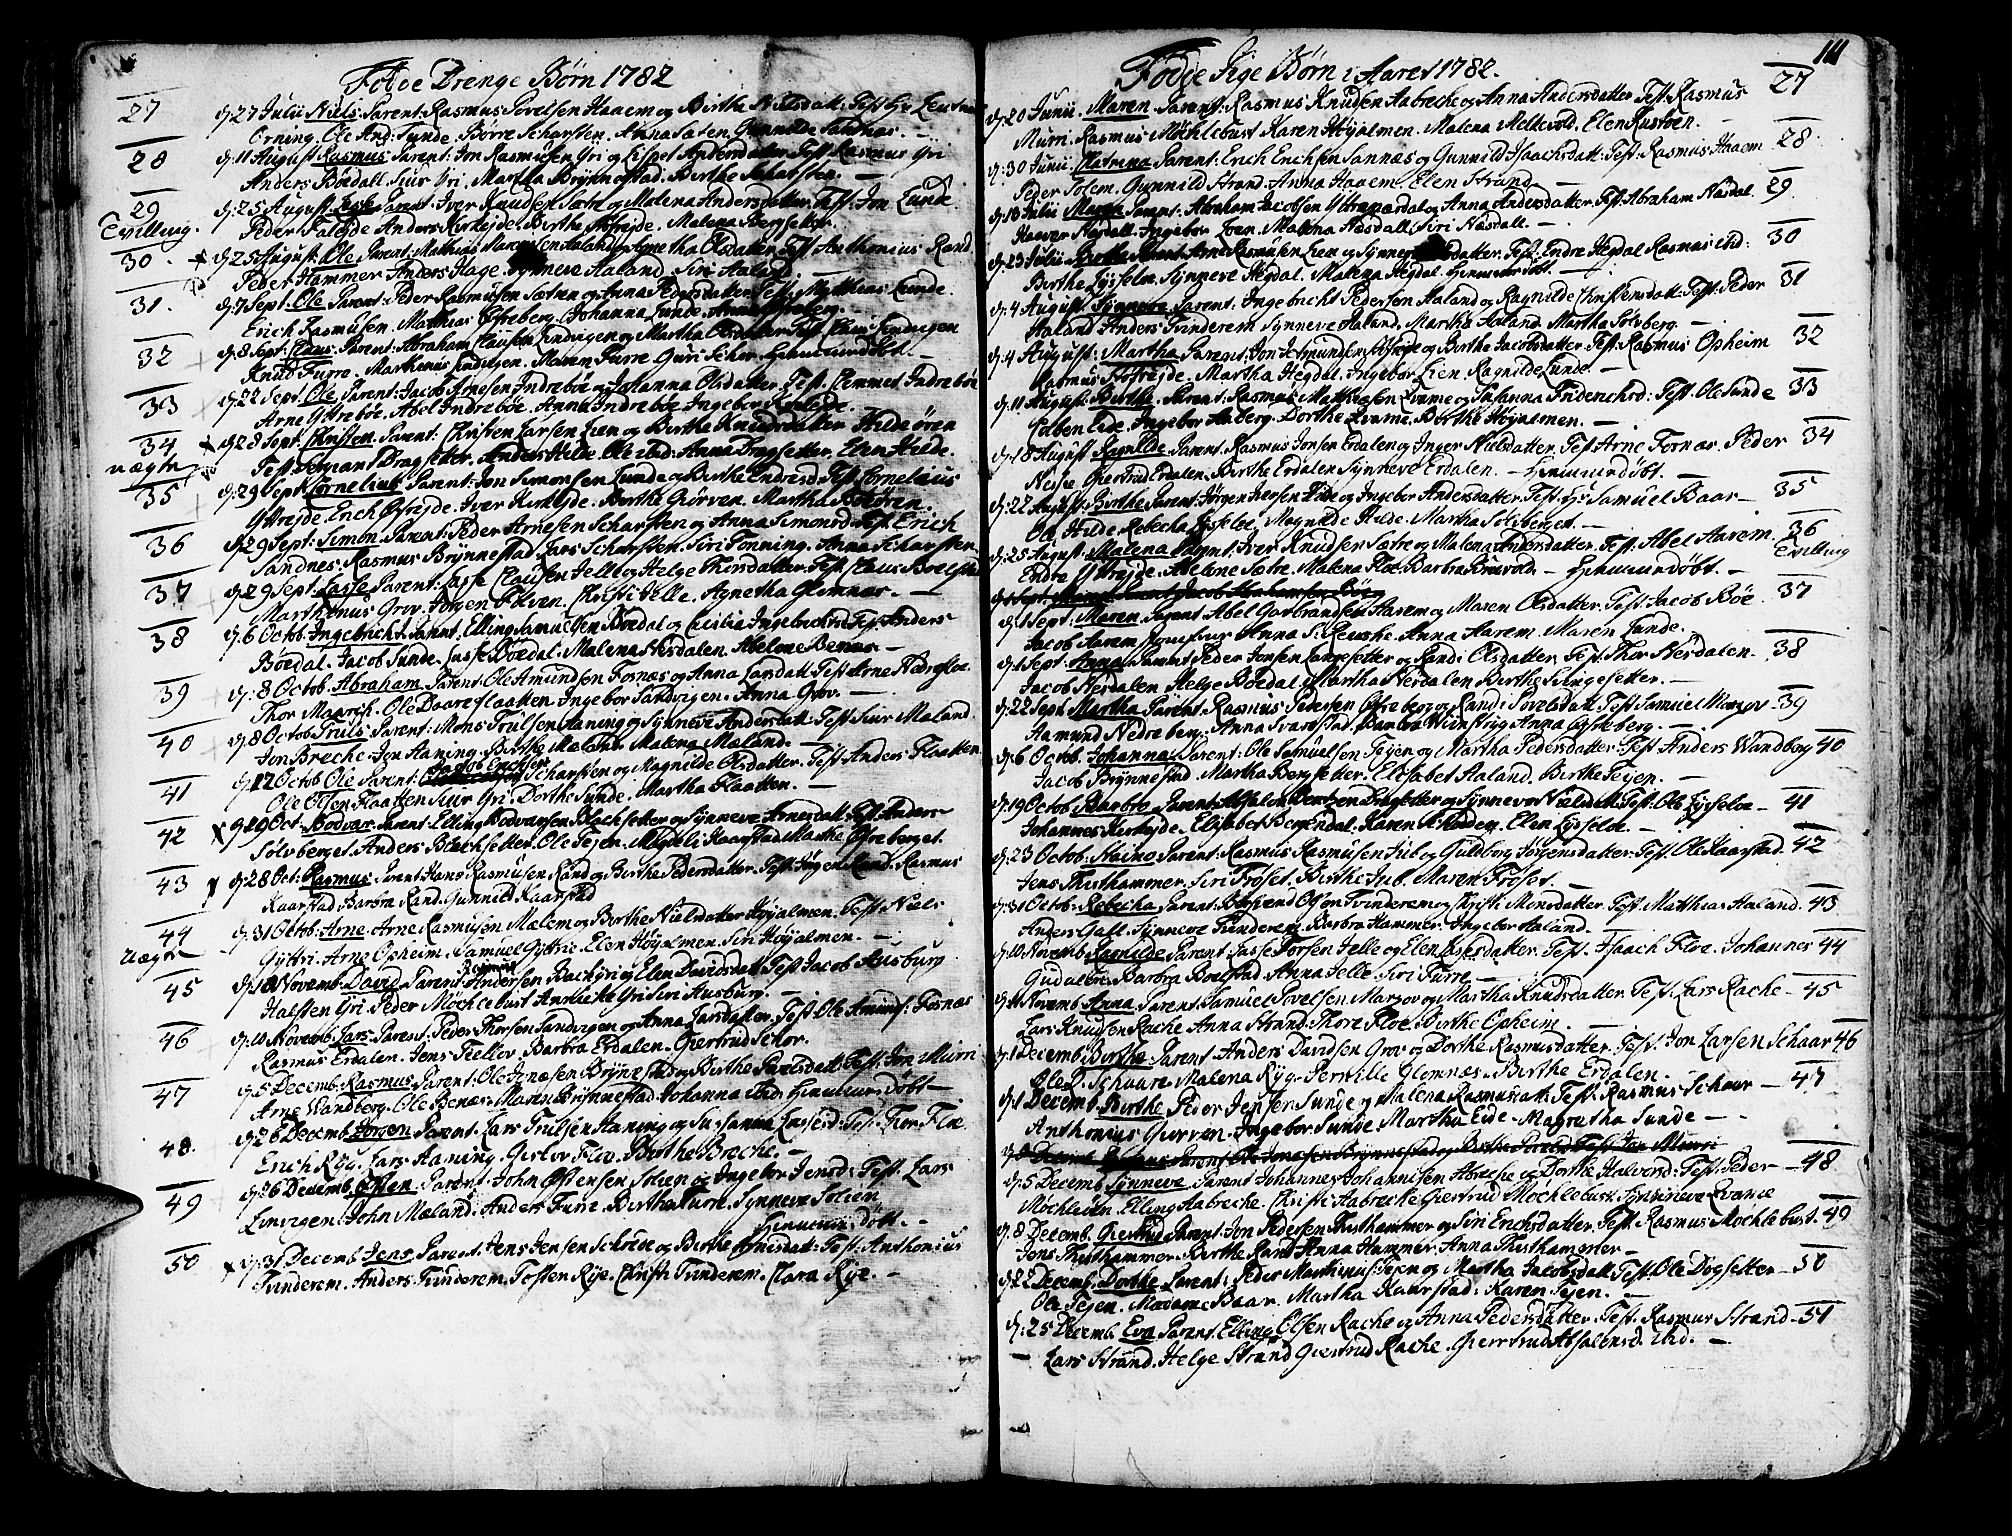 Fødde Drenge Børn 1782
27 d. 27 Julii Niels. Parent: Rasmus Povelsen Haaem og Birthe Nielsdatt: Test: Hr Leutnant
Orning. Ole And: Sunde. Børre Scharsten. Anna Saten. Gunnilde Sandnæs. –
28 d: 11 August Rasmus Parent: Jon Rasmusen Gri og Lispet Andersdatter Test: Rasmus Gri
Anders Böedall. Siur Gri. Martha Brynnestad. Birthe Scharsten. –
29 d: 25 August. Lasse Parent: Iver Knudsen Sætre og Malena Andersdatter. Test: Jon Lunde
Tvilling. Peder Anders Kirkejde. Birthe Østrejde. Malena Bergsetter.
30. d: 25 August. Ole Parent: Mathias Aaland og Agnetha Olsdatter. Test: Anthonius Rand
Peder Hammer. Anders Hage. Synneve Aaland. Siri Aaland. –
31. d: 7 Sept: Ole Parent: Peder Rasmusen Sætren og Anna Pedersdatter. Test: Matthias Lunde.
Erich Rasmusen. Mathias Østeberg. Johanna Lunde.
32 d: 8 Sept: Claus. Parent: Abraham Clausen Lindvigen og Martha Olsdatter Test: Claus Lindvigen
Knud Furre. Marthinus Lindvigen. Maren Furre Guri Schor. Hiemmedøbt. –
33 d: 22 Sept. Ole Parent: Jacob Indrebøe og Johanna Olsdatter. Test. Clemmet Indrebøe
Arne Yttrebøe. Abel Indrebøe. Anna Indrebøe Ingebor
34 d: 28 Sept. Christen. Parent: Christen Larsen Lien og Birthe Knudsdatter Hildeören
uægte Test. Sergiant Dragsetter. Anders Helde. Ole ibid. Anna Dragsetter. Elen Helde.
35 d: 29 Sept. Cornelius. Parent: Jon Simonsen Lunde og Birthe Endresd. Test: Cornelius
Yttrejde. Erich Østejde. Iver Kirkejde. Birthe Giörven. Martha
36 d: 29 Sept: Simon. Parent: Peder Arnesen Scharsten og Anna Simonsd. Test. Erich
Sandnes. Rasmus Brynnestad. Lars Scharsten. Siri Tonning. Anna Scharsten
37 d: 29 Sept. Lasse Parent: Lasse Clausen Jelle og Helge Thorsdatter. Test. Claus Boelstad
Marthinus Grov. Jörgen Olsven. Christi Jelle. Agnetha Glomnæs. –
38 d: 6 Octob. Ingebricht. Parent. Elling Samuelsen Böedal og Cecilia Ingebrichtsd. Test Anders
Böedal. Jacob Sunde. Lasse Boedal. Malena Nesdalen. Abelone Benæs. –
39 d: 8 Octob. Abraham. Parent. Ole Amundsen Fosnæs og Anna Larsdatt. Test Arne Nærgfloe
Thor Maarch. Ole Daareflaatten. Ingebor Sandvigen. Anna Grov. –
40 d: 8 Octob. Truls. Parent: Mons Trulsen Haning og Synneve Andersdatt. Test: Siur Mæland
Jon Breche. Jon Haning. Birthe Mæland. Malena Mæland. –
41 d: 12 Octob Ole Parent: Jacob Erichsen Scharsten og Magnilde Olsdatter. Test. Anders Flaatten
Ole Olsen Flaatten. Siur Gri. Dorthe Sunde. Martha Flaatten. –
42 d: 20 Oct. Bodvar. Parent. Elling Bodvarsen Blachsetter og Synneve Arnesdatt. Test. Anders
Sölvberget. Anders Blachsetter. Ole Tejen. Magneli Kaarstad. Marthe Østreberget.
43 d: 28 Oct. Rasmus. Parent. Hans Rasmusen Rand og Birthe Pedersdatter. Test: Jörgen Rand. Rasmus
Kaarstad. Barbra Rand. Gunnild Kaarstad
44 d: 31 Octob. Arne. Arne Rasmusen Mælem og Birthe Nielsdatter Høyalmen. Test. Niels
Uægte Gyttri. Arne Opheim. Samuel Gyttrie. Elen Höyalmen. Siri Höyalmen. –
45 d: 10 Novemb. David. Parent: Andersen og Elen Davidsdatt. Test Jacob Ausburg
Halsten Gri. Peder Möchlebust. Anniche Gri. Siri Ausburg. –
46 d: 10 Novemb. Lars. Parent. Peder Thorsen Sandvigen og Anna Larsdatter. Test Ole Amunds: Fosnæs
Rasmus Erdalen. Jens Tiellov. Barbra Erdalen. Giertrud Schor.
47 d: 5 Decemb. Rasmus. Parent. Ole Jonæsen Brynnestad og Birthe Test. Jon Murri
Arne Wandberg. Ole Benæs. Maren Brynnestad. Johanna ibid. Hiemmedøbt –
48. d: 26 Decemb. Jörgen. Parent. Lars Trulsen Haning og Susanna Test. Thor Floe
Erich Ryg. Lars Haning. Gustov Floe. Birthe Breche. –
49 d: 26 Decemb. Østen. Parent. John Østensen Solien og Ingebor Jensd. Test. Lars
Linvigen. John Mæland. Anders Furre. Birthe Furre. Synneve Solien
Hiemmedøbt. –
50 d: 31 Decemb. Jens. Parent. Jens Jensen Schrede og Birthe Test. Anthonius
Tvinderem. Anders Tvinderem. Tosten Rye. Christi Tvinderem. Clara Rye. –
111
Fødde Pige Børn i Aaret 1782.
d: 20 Junii. Maren Parent: Rasmus Knudsen Aabreche og Anna Andersdatter Test. Rasmus 27
Murri. Rasmus Möchlebust. Karen Höyalmen. Malena Melkevold. Elen Rustøen. –
d: 30 Junii. Cathrina Parent. Erich Erichsen Sannæs og Gunnild Isaachsdatt: Test. Rasmus Haaem 28
Peder Solem. Gunnild Strand. Anna Haaem. Elen Strand –
d: 18 Julii Maren Parent. Abraham Jacobsen Yttrenærdal og Anna Andersdatter. Test. Abraham Næsdal. 29
Haaver Næsdall. Ingebor Loen. Malena Næsdall. Siri Næsdall. –
d: 23 Julii Birthe Parent. Arne Rasmusen Lien og Synneve datter. Test. Endre Hegdal Rasmus ibid. 30
Birthe Lysseloe. Synneve Hegdal. Malena Hegdal. Hiemmedøbt. –
d: 4 August. Synneve Parent. Ingebricht Pedersen Aaland og Ragnilde Christensdatt. Test. Peder 31
Aaland Anders Tvinderem Synneve Aaland. Martha Aaland. Martha Sölvberg. –
d: 4 August: Martha Parent. Jon Østrejde og Birthe Jacobsdatter. Test. Rasmus Opheim 32
Rasmus Østrejde. Martha Hegdal. Ingebor Lien. Ragnilde Lunde. –
d: 11 August. Birthe. Parent. Rasmus Matthiasen Qvame og Susanna Fridenchsd: Test. Ole Sunde 33
Esben Eide. Ingebor Aaberg. Dorthe Qvame. Birthe Höyalmen. –
d: 18 August Ragnilde. Parent. Rasmus Jonsen Erdalen og Inger Nielsdatter. Test. Arne Fornæs. Peder 34
Nesje Giertrud Erdalen. Birthe Erdalen. Synneve Erdalen. – Hiemmedøbt. –
d: 22 August. Birthe Parent. Jörgen Iversen Hilde og Ingebor Andersdatter. Test: Hr Samuel Baar – 35
Ole Hilde Rebecha Lysseloe. Magnilde Hilde. Martha Solvberget. –
d: 25 August. Malena Parent. Iver Knudsen Sætre og Malena Andersdatter. Test. Abel Aarem. 36
Endre Yttrejde. Abelone Sætre. Malena Floe. Barbra Brevold. – Hiemmedøbt. – Tvilling
d: 1 Sept. Parent. Jacob Abrahamsen Böen
d: 1 Sept. Maren. Parent Abel Gabrandsen Aarem og Maren Olsdatter. Test. Jacob Böe 37
Jacob Aarem Anna S. Reusche. Anna Aarem. Maren Lunde.
d: 1 Sept. Anna Parent Peder Jensen Langesetter og Randi Olsdatter. Test. Thor Nesdalen. 38
Jacob Nesdalen. Helge Böedal. Martha Nesdalen Birthe Langesetter. –
d: 22 Sept. Martha Parent. Rasmus Pedersen Østreberg og Randi Povelsdatter. Test Samuel Margov 39
Aamund Nedreberg. Anna Svarstad. Barbra Anna Østeberg. –
d: 6 Octob. Johanna. Parent: Ole Samuelsen Tejen og Martha Pedersdatter. Test. Anders Wandborg 40
Jacob Brynnestad. Martha Bergsetter. Elisabet Aaland. Birthe Tejen. –
d: 19 Octob. Barbro Parent. Absalon Bentzen Dragsetter og Synneve Nielsdatt. Test. Ole Lysseloe – 41
Johannes Kirkejde. Elisabet Bergendal. Karen Elen Lysseloe. –
d: 23 Octob. Parent. Rasmus Rasmusen Jul og Guldborg Jörgensdatter. Test. Ole Kaarstad. 42
Jens Thisthammer. Siri Fröset. Birthe Jul. Maren Fröset. –
d: 31 Octob. Rebecha Parent: Olsen Tvinderem og Christi Monsdatter. Test. Matthias Aaland. 43
Anders Gast. Synneve Tvinderem. Barbra Hammer. Ingebor Aaland.
d: 10 Novemb. Ragnilde Parent. Lasse Torsen Jelle og Elen Larsdatter. Test. Isaach Floe. Johannes 44
Gudalen. Barbra Boelstad. Anna Jelle. Siri Furre –
Novemb. Anna. Parent. Samuel Povelsen. Margov og Martha Knudsdatter. Test. Lars Rache – 45
Lars Knudsen Rache Anna Strand. Thore Floe. Birthe Opheim. –
d: 1 Decemb. Birthe. Parent. Anders Davidsen Grov og Dorthe Rasmusdatter. Test. Jon Larsen Schaar 46
Ole D. Schaare. Malena Ryg. Pernille Glemnæs. Birthe Erdalen.
d: 1 Decemb. Birthe. Peder Jensen Sunde og Malena Rasmusdatt. Test. Rasmus Schaar – 47
Anthonius Giørven. Ingebor Sunde. Martha Eide. Magretha Sunde –
Rasmus Parent. Ole Jonæsen Brynnestad og Birthe Test. Jon Murri
d: 5 Decemb Synneve. Parent Johannes Johannisen Abreche og Dorthe Halvorsd: Test. Peder – 48
Möchleöien. Elling Aabreche. Christi Aabreche Giertrud Möchlebust. Synneve Qvame
d: 8 Decemb. Giertrud Parent. Jon Pedersen Thisthammer og Siri Erichsdatter. Test. Rasmus Möchlebust. 49
Jens Thisthammer. Birthe Rand. Anna Hammer. Anna Thisthammer –
d: 22 Decemb. Dorthe. Parent: Peder Marthinus: Tejen og Martha Jacobsdatt. Test. Ole Dogsetter – 50
Ole Tejen. Madame Baar. Martha Kaarstad. Karen Tejen. –
d: 25 Decemb. Eva. Parent. Elling Olsen Rache og Anna Pedersdatter. Test. Rasmus Strand – 51
– Lars Strand. Helge Strand Giertrud Rache. Giertrud Absalonsd. ibid. –